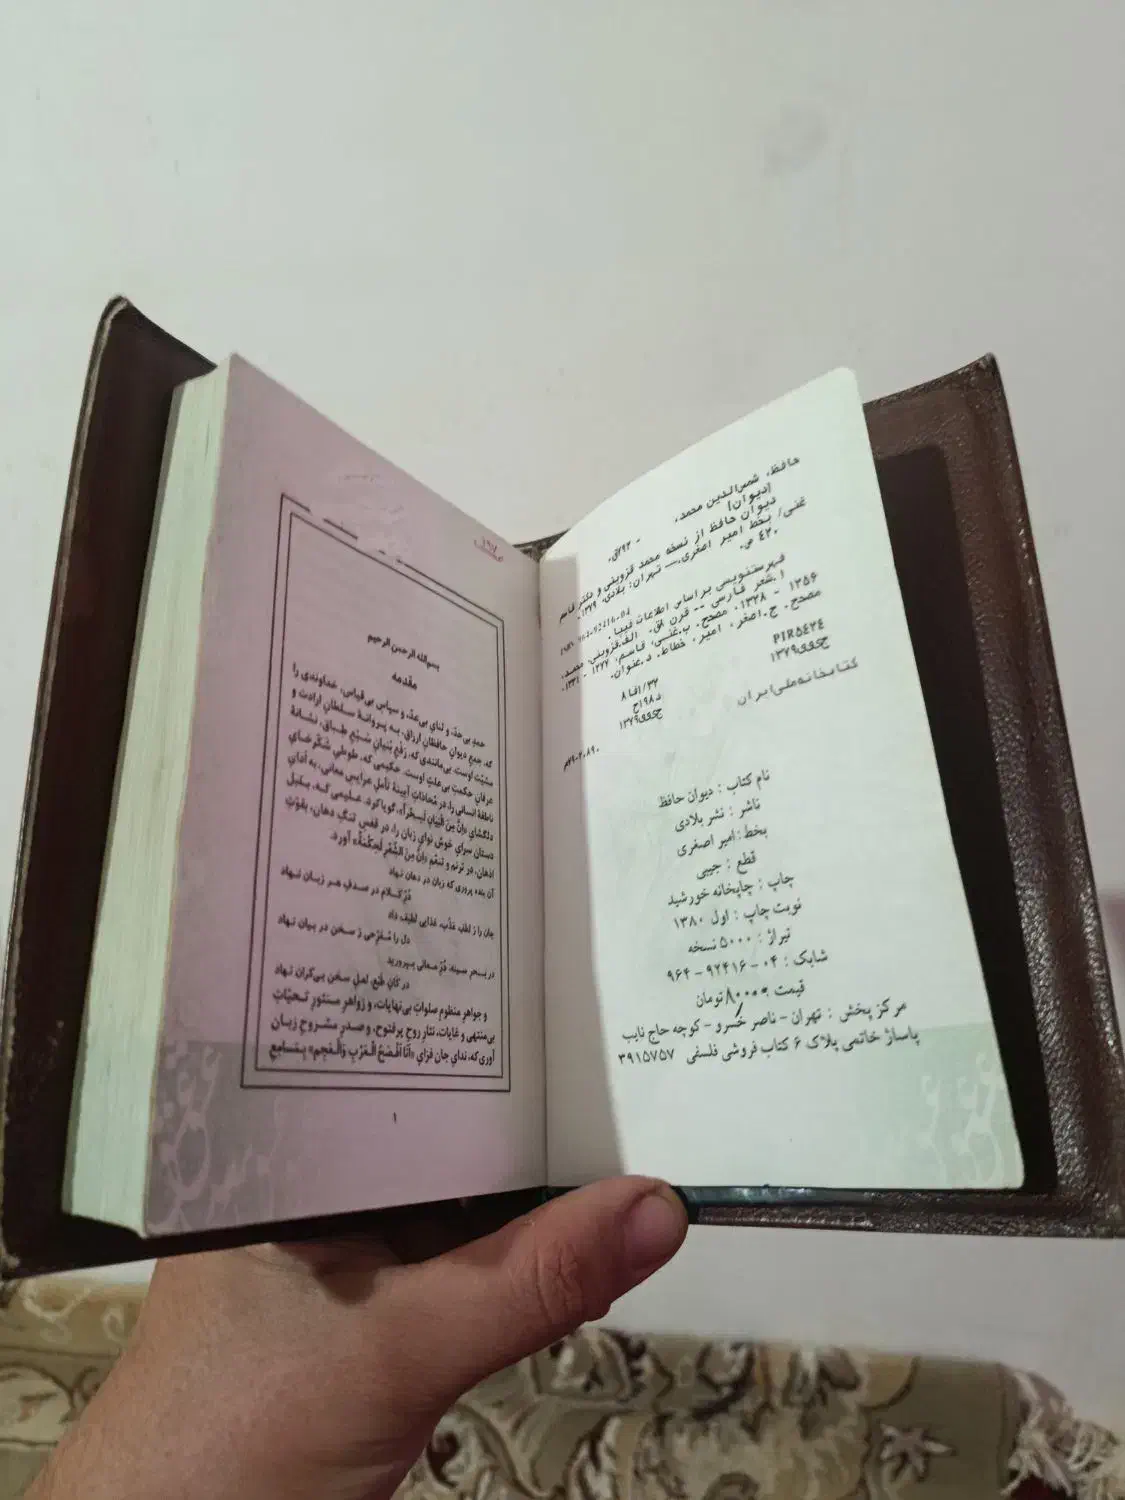 حافظ، شمس‌الدین محمد،
- ۷۹۲ق.
[دیوان]
دیوان حافظ از نسخه محمد قزوینی و دکتر قاسم
غنی/ بخط امیر اصغری.— تهران: بلادی، ۱۳۷۹.
۴۲۰ ص.
فهرستنویسی براساس اطلاعات فیپا.
۱.شعر فارسی -- قرن ۸ق. الف.قزوینی، محمد،
۱۲۵۶ - ۱۳۲۸، مصحح. ب.غنی، قاسم، ۱۲۷۷ - ۱۳۳۱.
مصحح. ج.اصغری، امیر، خطاط. د.عنوان.
PIR۵۴۲۴
۸فا۱/۳۲
کتابخانه ملی ایران
نام کتاب : دیوان حافظ
ناشر : نشر بلادی
بخط: امیر اصغری
قطع : جیبی
چاپ : چاپخانه خورشید
نوبت چاپ : اول ۱۳۸۰
تیراژ : ۵۰۰۰ نسخه
شابک : ۰۴ - ۹۲۴۱۶ - ۹۶۴
قیمت ۸۰۰۰۰ تومان
مرکز پخش : تهران - ناصر خسرو - کوچه حاج نایب
پاساژ خاتمی پلاک ۶ کتاب فروشی فلسفی ۳۹۱۵۷۵۷
بسم‌الله الرحمن الرحیم
مقدمه
حمدِ بی‌حدّ، و ثنایِ بی‌عدّ، و سپاسِ بی‌قیاس، خداوندی را
که، جمعِ دیوانِ حافظانِ ارزاق، به پروانهٔ سلطانِ ارادت و
مشیّت اوست. بی‌مانندی که، رَفعِ بُنیانِ سَبعِ طِباق، نشانهٔ
عرفانِ حکمتِ بی‌علتِ اوست. حکیمی که، طوطیِ شکّرخایِ
ناطقهٔ انسانی را، در مُحاذاتِ آیینهٔ تأملِ عرایسِ معانی، به اَدایِ
دلگشایِ «اِنَّ مِنَ الْبَیانِ لَسِحْراً»، گویا کرد. علیمی که، بلبلِ
دستان سرایِ خوش نوایِ زبان را، در قفسِ تنگِ دهان، بقوّتِ
اذهان، در ترنم و تنغّم «اِنَّ مِنَ الشِّعْرِ لَحِکْمَةً» آورد.
آن بنده پروری که زبان در دهان نهاد
دُرِّ کلام در صدفِ هر زبان نهاد
جان را ز لطفِ عَذْب، غذایی لطیف داد
دل را مُفَرِّحی ز سخن در بیان نهاد
در بحرِ سینه، دُرِّ معالی بپرورید
در کانِ طبع، لعلِ سخن بی‌کران نهاد
و جواهرِ منظومِ صلواتِ بی‌نهایات، و زواهرِ منثورِ تحیّاتِ
بی‌منتهی و غایات، نثارِ روحِ پرفتوح، و صدرِ مشروحِ زبان
آوری که، ندایِ جان فزایِ «اَنَا اَفْصَحُ الْعَرَبِ وَالْعَجَمِ» بِمَسامِعِ
۱